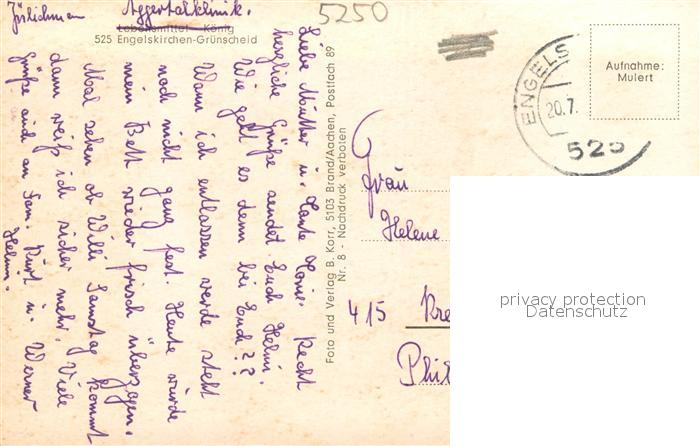 Aggertalklinik.
5250
Lebensmittel König
525 Engelskirchen-Grünscheid
Liebe Mutter u. Tante Höne! Recht
herzliche Grüße sendet Euch Helmi.
Wie geht es denn bei Euch??
Wann ich entlassen werde steht
noch nicht ganz fest. Heute wurde
mein Bett wieder frisch überzogen.
Mal sehen ob Willi Samstag kommt
dann weiß ich sicher mehr. Viele
Grüße auch an Fam. Kurt u. Werner
Helmi.
Foto und Verlag B. Korr, 5103 Brand/Aachen, Postfach 89
Nr. 8 - Nachdruck verboten
ENGELS
20.7.
525
Aufnahme:
Mulert
Frau
Helene
415 Kre
Phil
privacy protection
Datenschutz